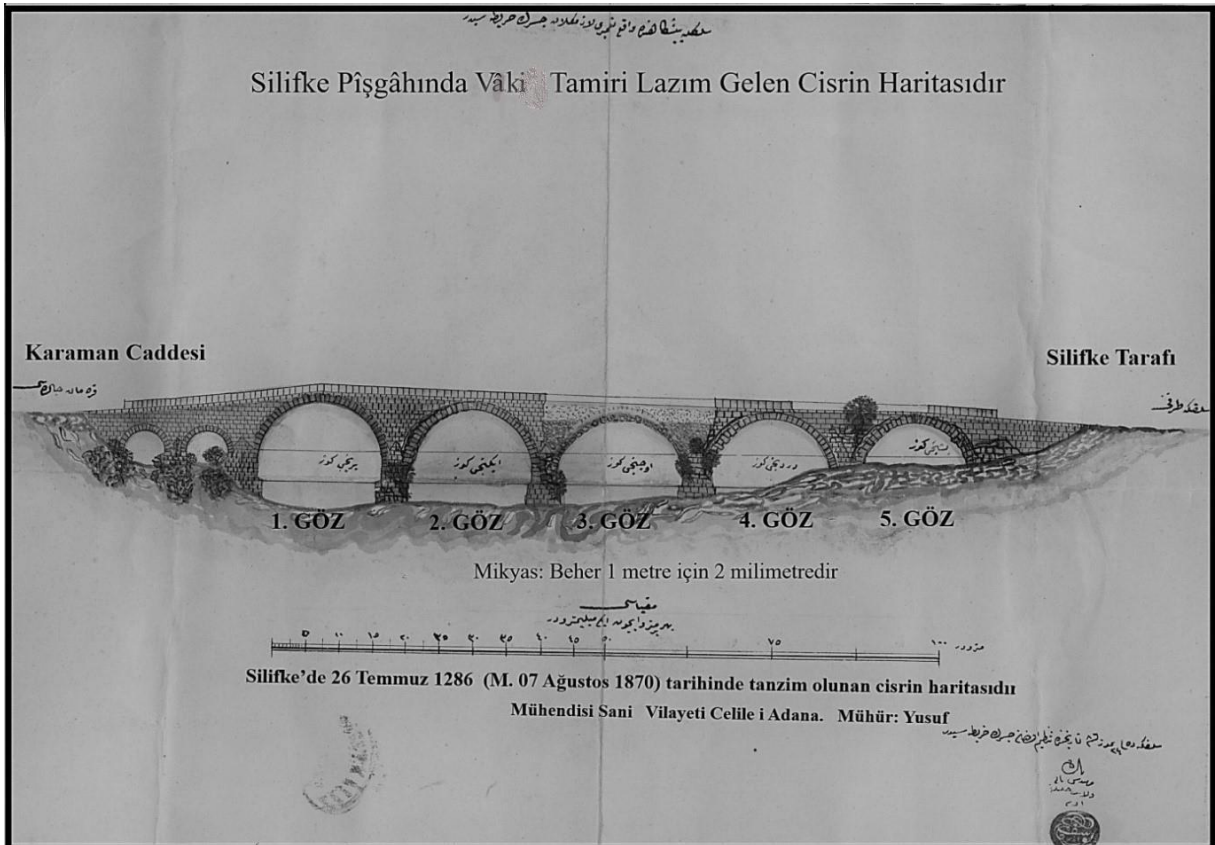 Silifke Pîşgâhında Vâki Tamiri Lazım Gelen Cisrin Haritasıdır
Karaman Caddesi
Silifke Tarafı
برنجی کوز
ایکنجی کوز
اوچنجی کوز
دردنجی کوز
1. GÖZ 2. GÖZ 3. GÖZ 4. GÖZ 5. GÖZ
Mikyas: Beher 1 metre için 2 milimetredir
مقیاسی
٥ ١٠ ١٥ ٢٠ ٢٥ ٣٠ ٣٥ ٤٠ ٤٥ ٥٠ ٧٥ ١٠٠
Silifke’de 26 Temmuz 1286 (M. 07 Ağustos 1870) tarihinde tanzim olunan cisrin haritasıdır
Mühendisi Sani Vilayeti Celile i Adana. Mühür: Yusuf